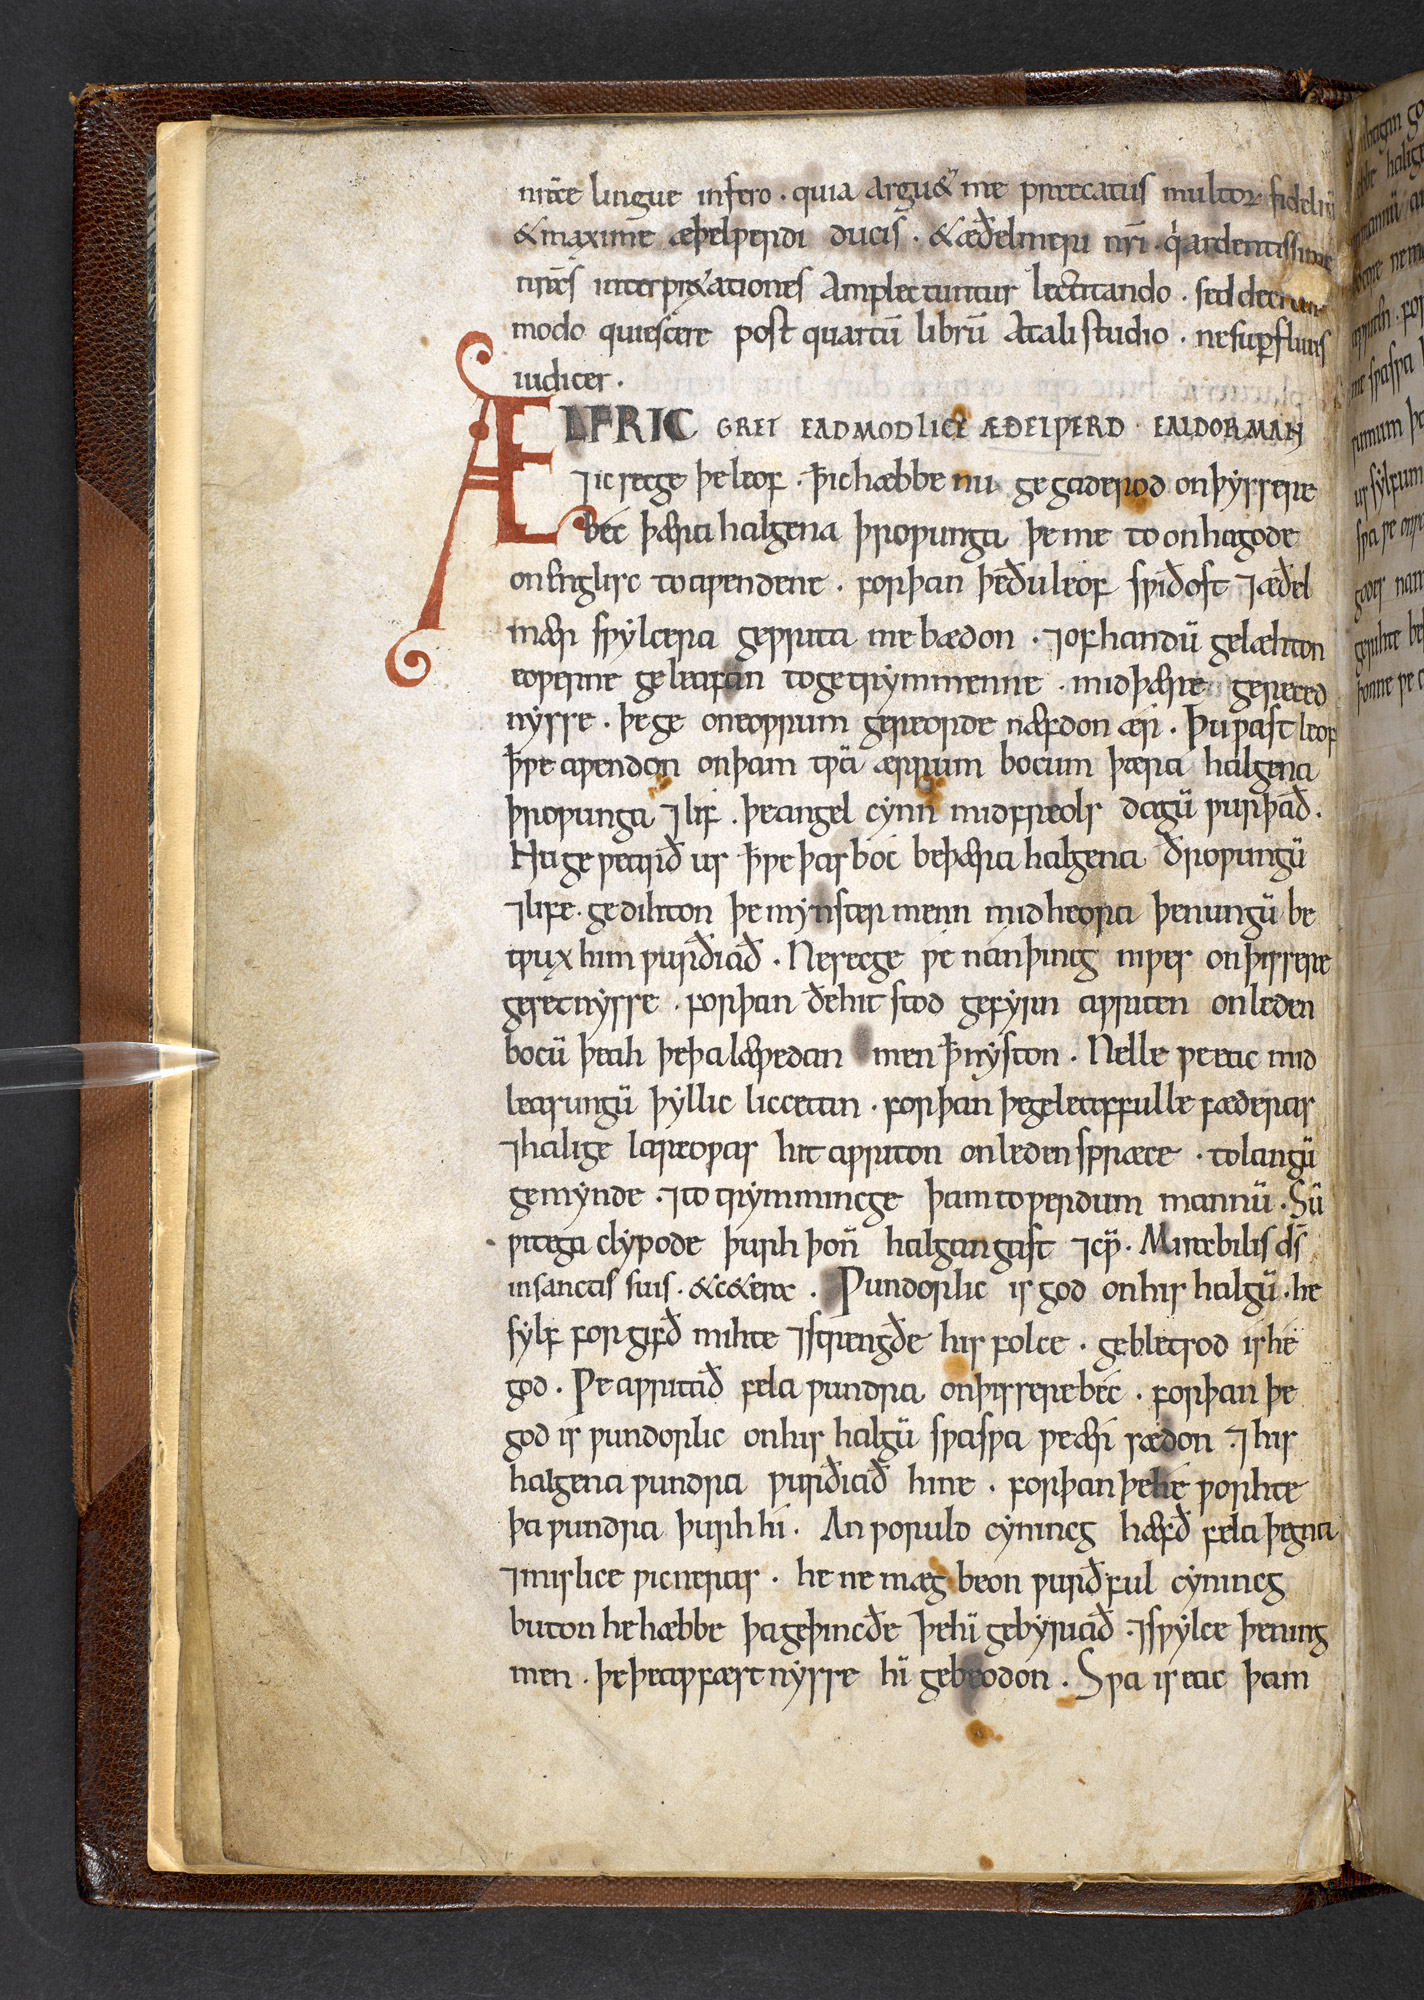 nr̄ate lingue infero · quia arguꝸ me precatus multoꝝ fideliū
⁊maxime æþelƿerdi ducis̄ · ⁊æðelmeri nr̄i · q̇ ardentissime
nr̄as interprꝸationes Amplectuntur lectitando · sed decreui
modo quiescere post quartū librū A tali studio · ne suꝑfluus
iudicer ·
ÆLFRIC GRET EADMODLICE ÆÐELǷERD · EALDORMAN
⁊ic secge þe leof · ꝥ ic hæbbe nu gegaderod on þyssere
bec þæra halgena þroƿunga þe me to onhagode
on englisc to aƿendene · for þan þe ðu leof sƿiðost ⁊ æðel
mær sƿylcera geƿrita me bædon · ⁊ of handū gelæhton
eoƿerne geleafan to getrymmenne · mid þære gereced
nysse · þe ge on eoƿrum gereorde næfdon ær · Þu ƿast leof
ꝥ ƿe aƿendon on þam tƿam ærrum bocum þæra halgena
þroƿunga ⁊ lif · þe angel cynn mid freols dagū ƿurþað ·
Nu geƿearð us ꝥ ƿe þas boc be þæra halgena ðroƿungū
⁊ life · gedihton þe mynster menn mid heora þenungū be
tƿux him ƿurðiað · Ne secge ƿe nan þincg niƿes on þissere
gesetnysse · for þan ðe hit stod gefyrn aƿriten on leden
bocū þeah þe þa læƿedan men ꝥ nyston · Nelle ƿe eac mid
leasungū þyllic liccetan · for þan þe geleaffulle fæderas
⁊ halige lareoƿas hit aƿriton on leden sprǣce · to langū
gemynde · ⁊ to trymmincge þam to ƿerdum mannū · Sū
ƿitega clypode þurh þon̄ halgan gast ⁊ cƿ̄ · Mirabilis ds̄
in sanctis suis · ⁊cꝸera · Ƿundorlic is god on his halgū · he
sylf forgifð mihte ⁊ strengðe his folce · gebletsod is he
god · Ƿe aƿritað fela ƿundra on þissere bec · for þan þe
god is ƿundorlic on his halgū sƿa sƿa ƿe ær sædon · ⁊ his
halgena ƿundra ƿurðiað hine · for þan þe he ƿorhte
þa ƿundra þurh hi · An ƿoruld cynincg hæfð fela þegna
⁊ mislice ƿicneras · he ne mæg beon ƿurðful cynincg
buton he hæbbe þa geþincðe þe hī gebyriað · ⁊ sƿylce þening
men · þe þeaƿfæstnysse hī gebeodon · Sƿa is eac þam